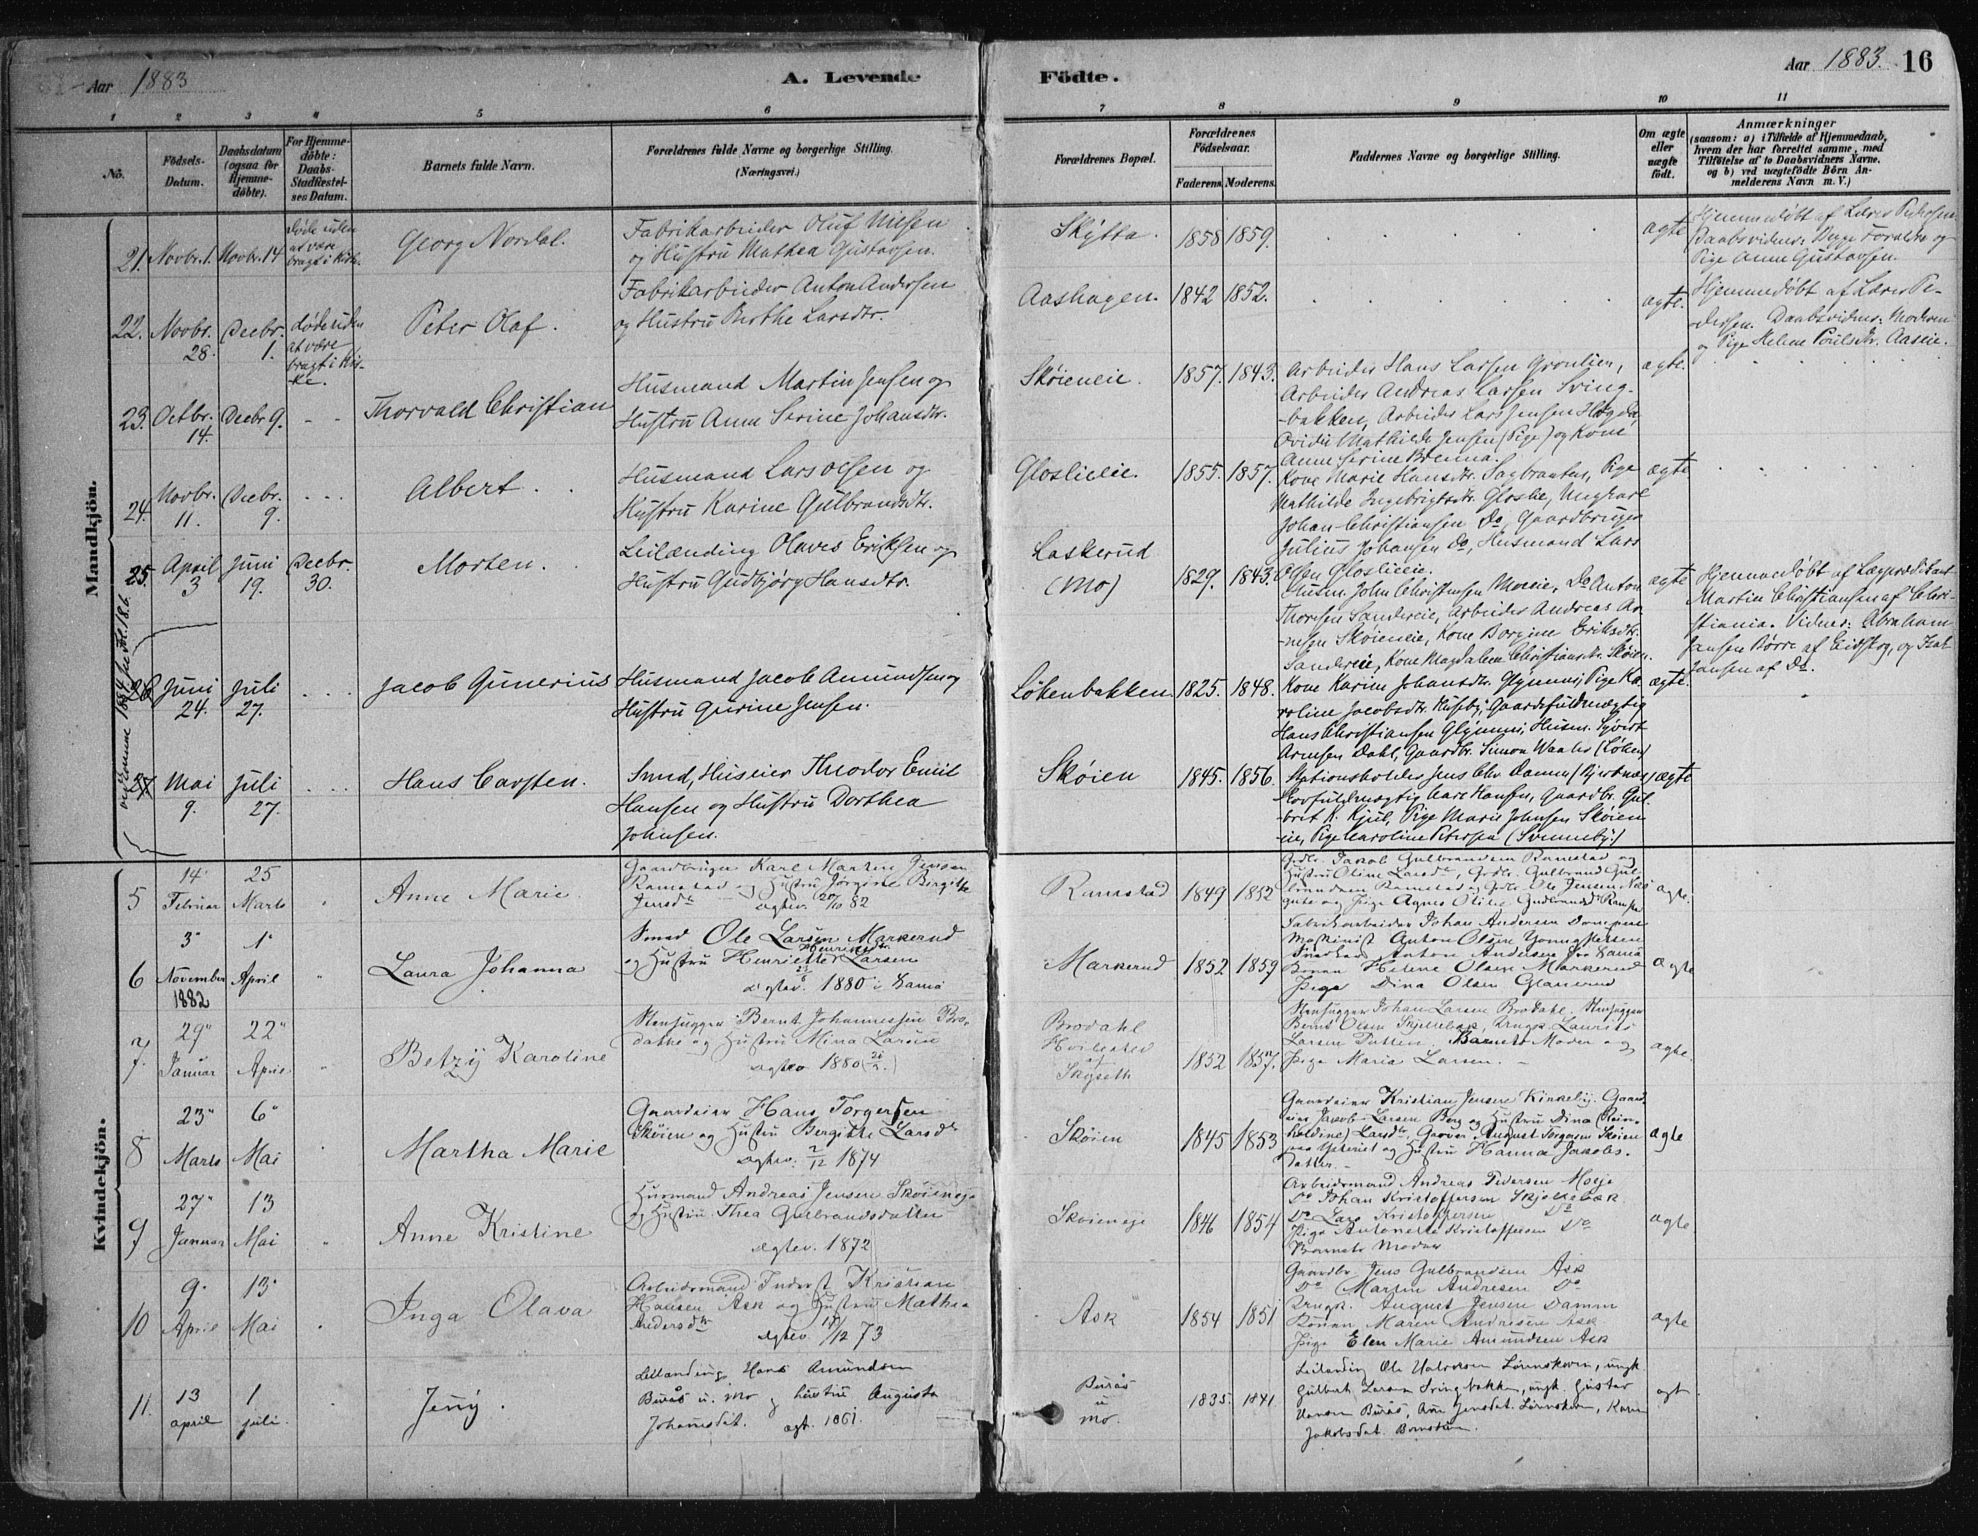 Aar 1883
A. Levende
Födte.
Aar 1883. 16
1 2 3 4 5 6 7 8 9 10 11
No.
Födsels-
Datum.
Daabsdatum
(ogsaa for
Hjemme-
döbte).
For Hjemme-
döbte:
Daabs-
Stadfæstel-
ses Datum.
Barnets fulde Navn.
Forældrenes fulde Navne og borgerlige Stilling.
(Næringsvei.)
Forældrenes Bopæl.
Forældrenes
Födselsaar.
Faderens. Moderens.
Faddernes Navne og borgerlige Stilling.
Om ægte
eller
uægte
født.
Anmærkninger
(saasom: a) i Tilfælde af Hjemmedaab,
hvem der har forrettet samme, med
Tilföielse af to Daabsvidners Navne.
og b) ved uægtefödte Börn An-
melderens Navn m. V.)
Mandkjön.
21. Novbr. 1. Novbr. 14
døde uden
at være
bragt i Kirk.
Georg Nordal.
Fabrikarbeider Oluf Nilsen
og Hustru Mathea Gustavsen.
Skytta. 1858 1859. ægte
Hjemmedøbt af Lærer Pedersen
Daabsvidner: Begge Forældre og
Pige Anne Gustavsen.
22. Novbr. 28. Decbr. 1.
døde uden
at være
bragt i Kir-
ke.
Peter Olaf.
Fabrikarbeider Anton Andersen
og Hustru Berthe Larsdtr.
Aashagen. 1842 1852. ægte.
Hjemmedøbt af Lærer Pe-
dersen. Daabsvidner: Moderen
og Pige Helene Poulsdtr. Aaseie.
23. Octbr. 14. Decbr 9.
Thorvald Christian
Husmand Martin Jensen og
Hustru Anne Serine Johansdtr.
Skøieneie. 1857. 1843. ægte.
Arbeider Hans Larsen Grønlien,
Arbeider Andreas Larsen Sving-
bakken, Arbeider Lars Jensen
Mathilde Jensen (Pige) og Kone
Anne Serine Brenna.
24. Novbr. 11. Decbr. 9.
Albert.
Husmand Lars Olsen og
Hustru Karine Gulbrandsdtr.
Gloslieie. 1855. 1857. ægte
Kone Marie Hansdtr. Sagbraaten, Pige
Mathilde Ingebrigtsdtr. Gloslie, Ungkarl
Johan Christiansen Do, Gaardbruger
Julius Johansen Do, Husmand Lars
Olsen Gloslieie.
25. April 3 Juni 19. Decbr. 30.
Morten.
Leilænding Olaves Eriksen og
Hustru Gudbjørg Hansdtr.
Laskerud
(Mo)
1829. 1843. ægte
Husm. John Christensen Moeie, Do Anton
Thoresen Sandereie, Arbeider Andreas Ar-
nesen Skøieneie, Kone Borgine Eriksdtr.
Sandereie, Kone Magdalene Christiansdtr. Skøien.
Hjemmedøbt af Lægprædikant
Martin Christiansen af Chri-
stiania. Vidner: Abraham
Jansen Børre af Eidskog, og Isak
Jansen af Do
26 Juni 24. Juli 27.
Jacob Gunerius
Husmand Jacob Amundsen og
Hustru Gurine Jensen.
Løkenbakken. 1825. 1848. ægte.
Kone Karine Johansdtr. Glynnei, Pige Ka-
roline Jacobsdtr. Huseby, Gaardsfuldmægtig
Hans Christiansen Glynnei, Husm. Syvert
Arnesen Dahl, Gaardbr. Simon Waaler (Løken)
27 Mai 9. Juli 27.
Hans Carsten.
Smed, Huseier Theodor Emil
Hansen og Hustru Dorthea
Johnsen.
Skøien 1845. 1856. ægte
Stationsholder Jens Chr. Damm
Skovfuldmægtig Carl Hansen, Gaardbr. Gul-
brit K. Kjul, Pige Marie Johnsen Skøien
eie, Pige Karoline Petersen
Kvindekjön.
5 14" Februar 25 Marts
Anne Marie
Gaardbruger Karl Martin Jensen
Ramstad og Hustru Jørgine Bergitte
Jensdtr ægtev. 82
Ramstad 1849 1852 ægte.
Grdbr. Jakob Gulbrandsen Ramstad og
Hustru Oline Larsdtr, Grdbr. Gulbrand Gul-
brandsen Ramstad og Grdbr. Ole Jensen
og Pige Agnes Otilie Gudbrandsd Ramstad
6 3" November 1882 1" April
Laura Johanna
Smed Ole Larsen Markerud
og Hustru Henriette Larsen
Henriksdtr
ægtev. 1880 i
Markerud 1852 1859 ægte
Fabrikarbeider Johan Andersen
Maskinist Anton Olsen
Anton Andersen
Konen Helene Olsen Markerud
Pige Dina Olsen Glanerud
7. 29" Januar 22" April
Betzy Karoline
Stenhugger Bernt Johannessen Bro-
og Hustru Mina Larsen
ægtev 1880
Brodahl
Hvilested
af
Skyseth
1852 1857. ægte.
Stenhugger Johan Larsen Brodahl, Stenhugger
Bernt Olsen Skjellebæk, Laurits
Larsen Barnets Moder og
Pige Maria Larsen.
8 23" Marts 6" Mai
Martha Marie
Gaardeier Hans Torgersen
Skøien og Hustru Bergitte Larsdtr
ægtev. 2/12 1874
Skøien 1845 1853 ægte
Gaardeier Kristian Jensen Kirkeby. Gaard-
eier Jacob Larsen Berg og Hustru Dina (Rein-
holdine) Larsdtr. August Torgersen Skøien
og Hustru Hanna Jakobs-
datter.
9 27" Januar 13 Mai
Anne Kristine
Husmand Andreas Jensen Skøieneje
og Hustru Thea Gulbrandsdatter
ægtev. 1872
Skøieneje 1846 1854 ægte
Arbeidsmand Andreas Pedersen Moeje
Do Johan Kristoffersen Skjellebæk
Do Lars Kristoffersen Do
Pige Antonette Kristoffersen Do
Barnets Moder
10 9" April 13" Mai
Inga Olava
Arbeidsmand Inderst Kristian
Hansen Ask og Hustru Mathea
Andersdtr ægtev. 73
Ask 1854 1851 ægte
Gaardbr Jens Gulbrandsen Ask
Do Martin Andresen Do
Ungk. August Jensen Damm
Konen Maren Andresen Ask
Pige Elen Marie Amundsen Ask
11. 13 april 1 juli.
Jeny.
Leilænding, Hans Amundsen
Burås u. Mo og hustru Augusta
Johannesdat. ægt. 1861.
Burås
u
Mo.
1835. 1841. ægt
Leilending Ole Lønnskoven, ungk
Gulbert Larsen Svingbakken, ungk. Gustav
Hansen Burås, Ane Jensdat. Lønnskoven, Karen
Jakobsdat.